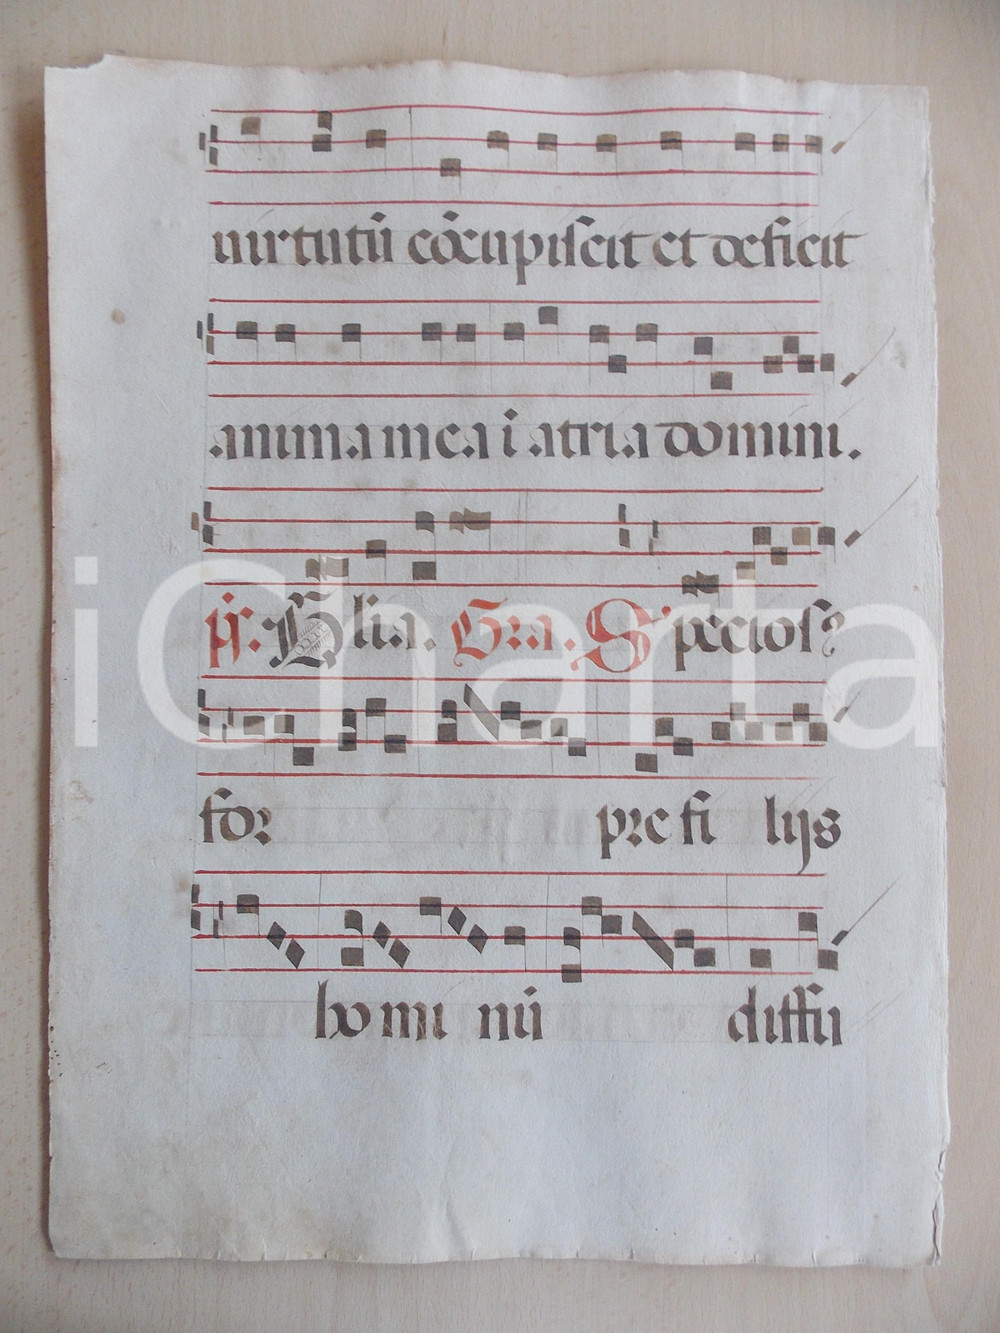 uirtutū cōcupiscit et deficit
anima mea ī atria domini.
ps. Glia. Gra. Specios?
for pre fi lijs
homi nū diffu
iCharta